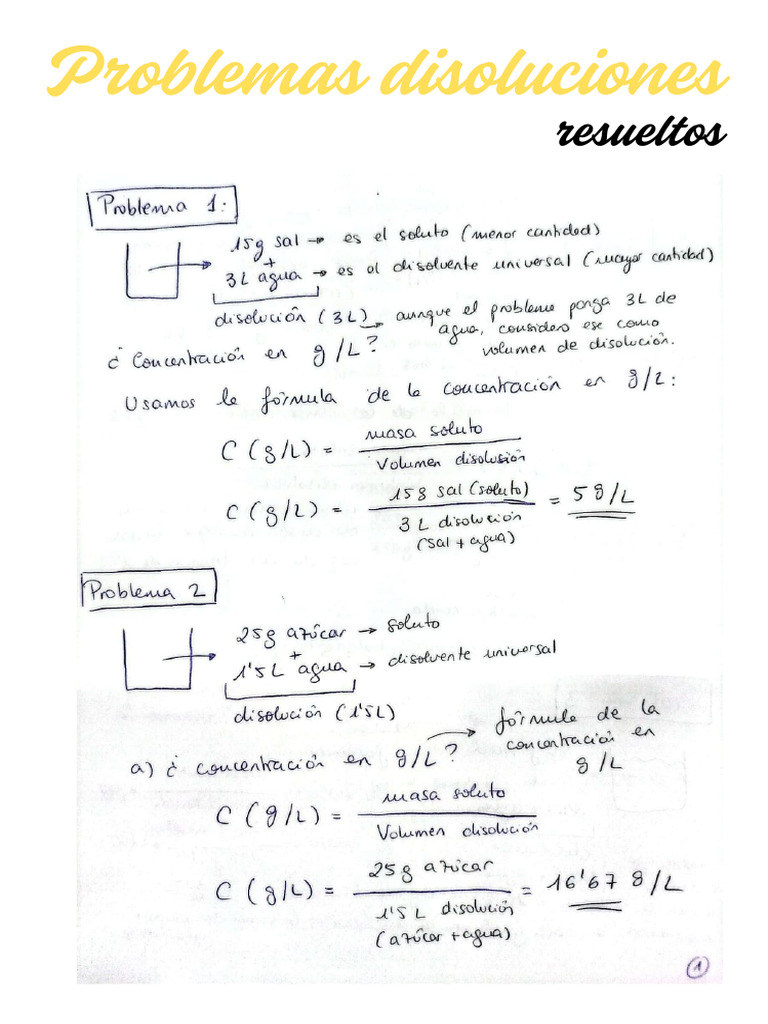 Problemas disoluciones
resueltos
Problema 1:
15g sal → es el soluto (menor cantidad)
+
3L agua → es el disolvente universal (mayor cantidad)
disolución (3L) → aunque el problema ponga 3L de
agua, considero ese como
volumen de disolución.
¿Concentración en g/L?
Usamos la fórmula de la concentración en g/L:
C (g/L) = masa soluto / Volumen disolusión
C (g/L) = 15g sal (soluto) / 3L disolución (sal + agua) = 5 g/L
Problema 2
25g azúcar → soluto
+
1'5L agua → disolvente universal
disolución (1'5L)
a) ¿concentración en g/L? → fórmula de la
concentración en
g/L
C (g/L) = masa soluto / Volumen disolución
C (g/L) = 25g azúcar / 1'5L disolución (azúcar + agua) = 16'67 g/L
1